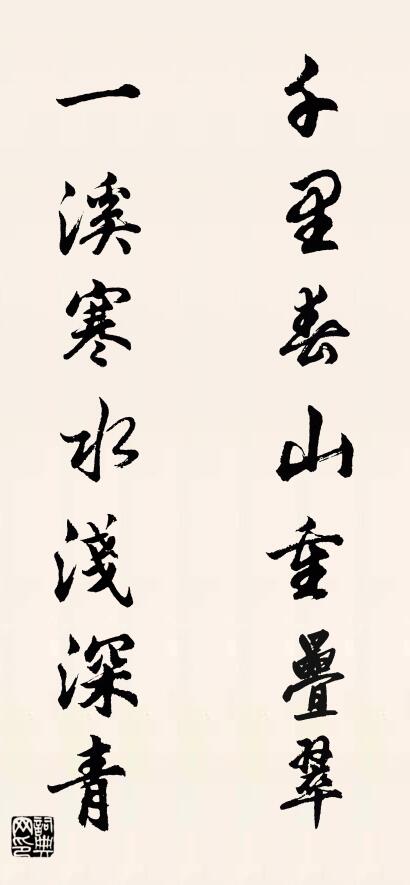 千里春山重疊翠
一溪寒水淺深青
詞典網印